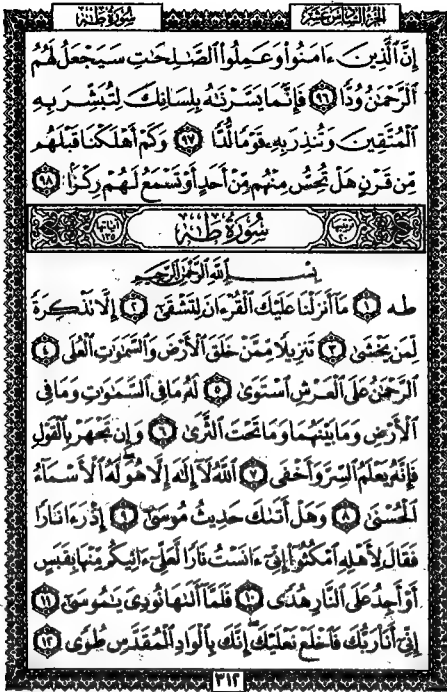 سُورَةُ طه
الجزء السادس عشر
إِنَّ ٱلَّذِينَ ءَامَنُوا۟ وَعَمِلُوا۟ ٱلصَّـٰلِحَـٰتِ سَيَجْعَلُ لَهُمُ
ٱلرَّحْمَـٰنُ وُدًّا ٩٦ فَإِنَّمَا يَسَّرْنَـٰهُ بِلِسَانِكَ لِتُبَشِّرَ بِهِ
ٱلْمُتَّقِينَ وَتُنذِرَ بِهِۦ قَوْمًا لُّدًّا ٩٧ وَكَمْ أَهْلَكْنَا قَبْلَهُم
مِّن قَرْنٍ هَلْ تُحِسُّ مِنْهُم مِّنْ أَحَدٍ أَوْ تَسْمَعُ لَهُمْ رِكْزًۢا ٩٨
سُورَةُ طه
بِسْمِ ٱللَّهِ ٱلرَّحْمَـٰنِ ٱلرَّحِيمِ
طه ١ مَآ أَنزَلْنَا عَلَيْكَ ٱلْقُرْءَانَ لِتَشْقَىٰٓ ٢ إِلَّا تَذْكِرَةً
لِّمَن يَخْشَىٰ ٣ تَنزِيلًا مِّمَّنْ خَلَقَ ٱلْأَرْضَ وَٱلسَّمَـٰوَٰتِ ٱلْعُلَى ٤
ٱلرَّحْمَـٰنُ عَلَى ٱلْعَرْشِ ٱسْتَوَىٰ ٥ لَهُۥ مَا فِى ٱلسَّمَـٰوَٰتِ وَمَا فِى
ٱلْأَرْضِ وَمَا بَيْنَهُمَا وَمَا تَحْتَ ٱلثَّرَىٰ ٦ وَإِن تَجْهَرْ بِٱلْقَوْلِ
فَإِنَّهُۥ يَعْلَمُ ٱلسِّرَّ وَأَخْفَى ٧ ٱللَّهُ لَآ إِلَـٰهَ إِلَّا هُوَ لَهُ ٱلْأَسْمَآءُ
ٱلْحُسْنَىٰ ٨ وَهَلْ أَتَىٰكَ حَدِيثُ مُوسَىٰٓ ٩ إِذْ رَءَا نَارًا
فَقَالَ لِأَهْلِهِ ٱمْكُثُوٓا۟ إِنِّىٓ ءَانَسْتُ نَارًا لَّعَلِّىٓ ءَاتِيكُم مِّنْهَا بِقَبَسٍ
أَوْ أَجِدُ عَلَى ٱلنَّارِ هُدًى ١٠ فَلَمَّآ أَتَىٰهَا نُودِىَ يَـٰمُوسَىٰٓ ١١
إِنِّىٓ أَنَا۠ رَبُّكَ فَٱخْلَعْ نَعْلَيْكَ إِنَّكَ بِٱلْوَادِ ٱلْمُقَدَّسِ طُوًى ١٢
٣١٢